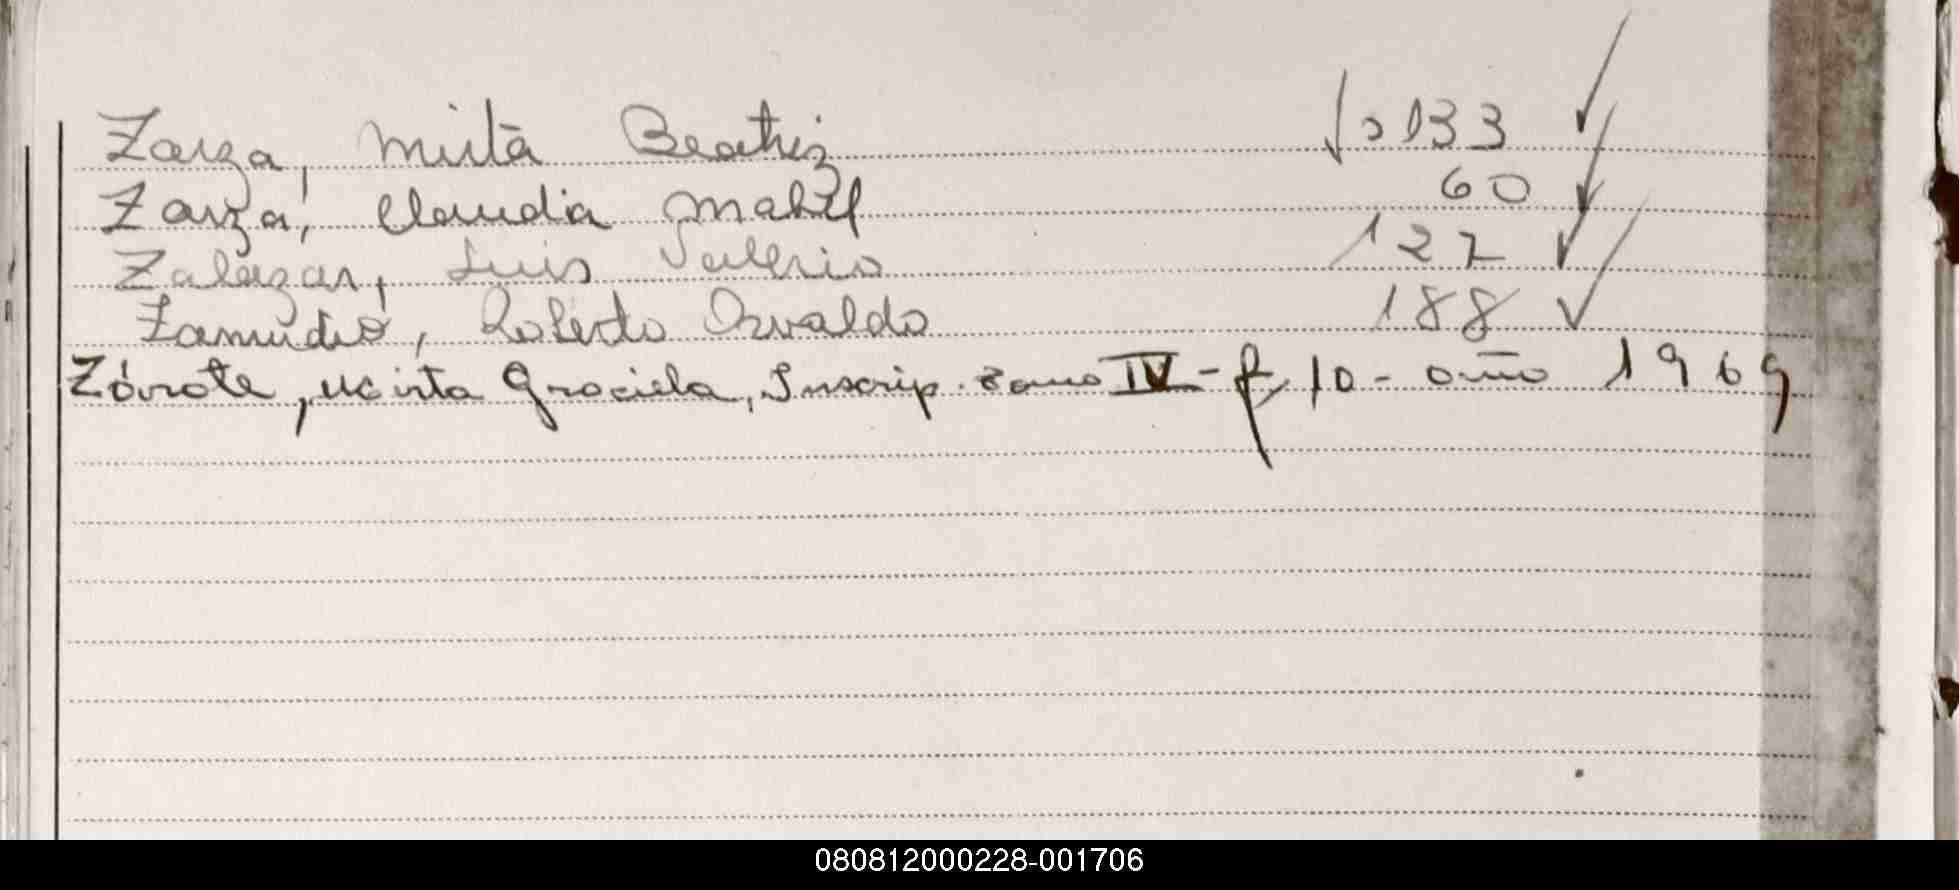 Zarza, Mirta Beatriz 133
Zarza, Claudia Mabel 60
Zalazar, Luis Valerio 127
Zamudio, Roberto Osvaldo 188
Zárate, Mirta Graciela, Inscrip. Tomo IV - f, 10 - año 1969
080812000228-001706